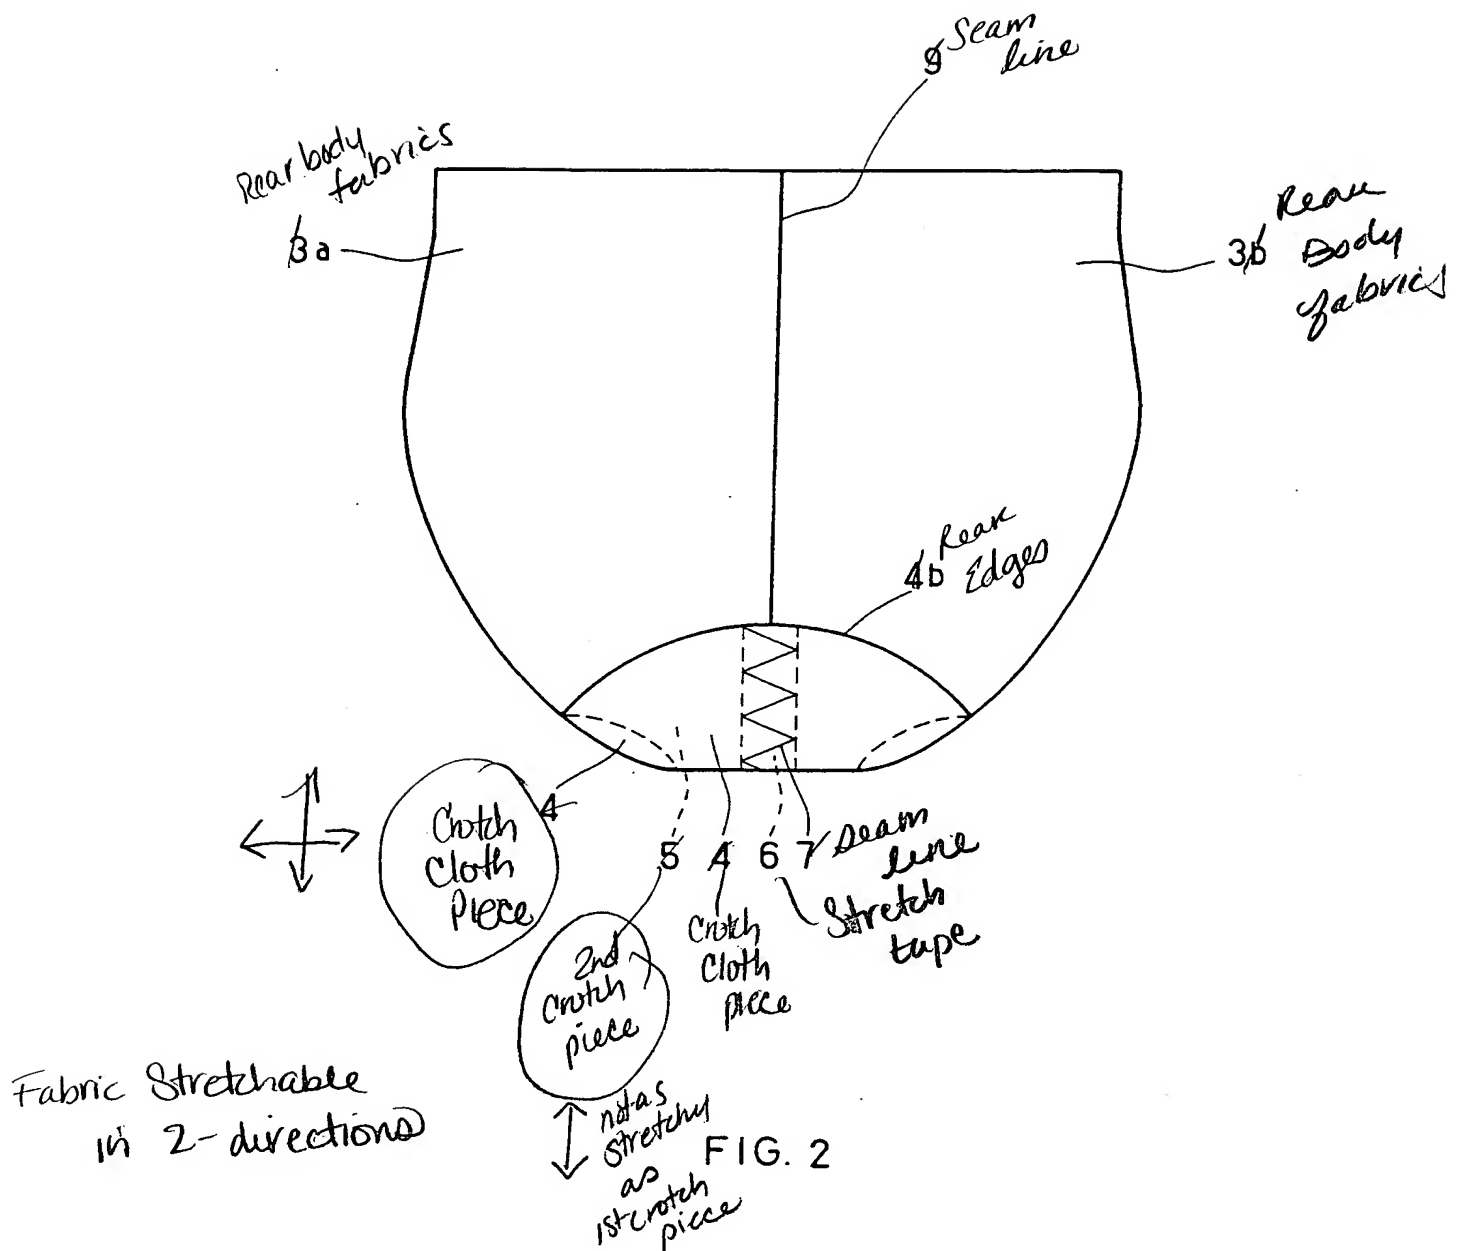 9 Seam
line
Rear body
fabrics
3a
3b Rear
Body
fabrics
4b Rear
Edges
4
Crotch
Cloth
Piece
5 4 6 7 Seam
line
Stretch
tape
Crotch
Cloth
piece
2nd
Crotch
piece
Fabric Stretchable
in 2-directions
not as
stretchy
as
1st crotch
piece
FIG. 2